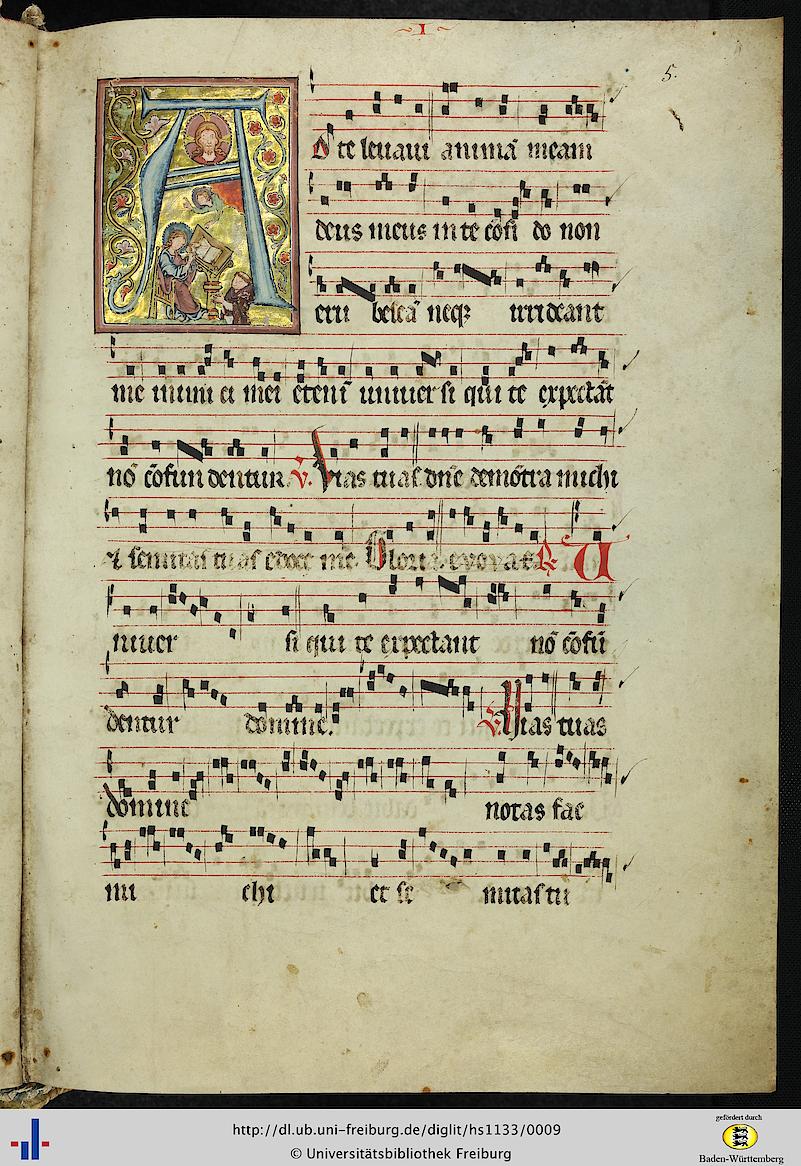 I
5.
A D te leuaui animā meam
deus meus in te cōfi do non
eru bescā neqꝫ irrideant
me inimi ci mei etenī uniuer si qui te expectāt
nō cōfun dentur. V. Vias tuas dn̄e demōstra michi
& semitas tuas edoce me. Gloria. evovae. R. U
niuer si qui te expectant nō cōfū
dentur domine. V. Vias tuas
domine notas fac
mi chi et se mitas tu
http://dl.ub.uni-freiburg.de/diglit/hs1133/0009
© Universitätsbibliothek Freiburg
gefördert durch
Baden-Württemberg